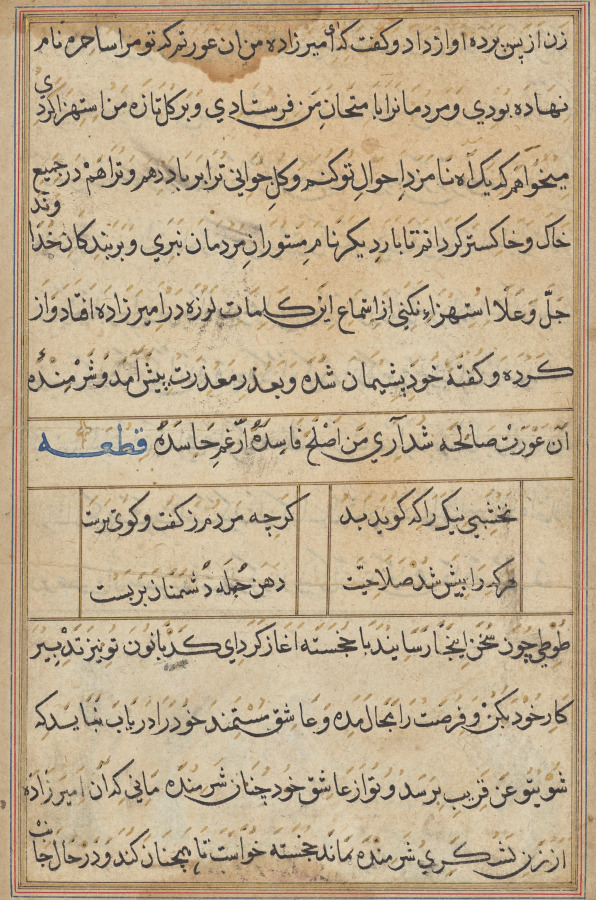 زن از پس پرده اواز داد و کفت که ای امیر زاده من ان عورتم که تو مرا ساحره نام
نهاده بودي و مردمانرا با متحان من فرستادي و بر کل تازه من استهزا کردي
میخواهم که یک آه نامزد احوال تو کنم و کل جوانی ترا بر باد دهم و ترا هم در جمیع
خاک و خاکستر کردانم تا بار دیکر نام مستوران مردمان نبري و بر بندکان خداوند
جلّ و علا استهزاء نکنی از استماع این کلمات لرزه در امیر زاده افتاد و از
کرده و کفته خود پشیمان شده و بعذر معذرت پیش آمد و شرمندهٔ
آن عورت صالحه شد آري من اصلح فاسده ارغم حاسده قطعه
نخشبي نیک را که کوید بد کرچه مردم ز کفت و کوی برست
هرکه را بیش شد صلاحیّت دهن جمله دشمنان بربست
طوطي چون سخن اینجا رسانید با خجسته اغاز کرد اي کدبانون تو نیز تدبیر
کار خود بکن و فرصت را مجال مده و عاشق مستمند خود را دریاب نباید که
شوي تو عن قریب برسد و تو از عاشق خود چنان شرمنده مانی که آن امیر زاده
از زن لشکري شرمنده ماند خجسته خواست تا همچنان کند و در حال جانب